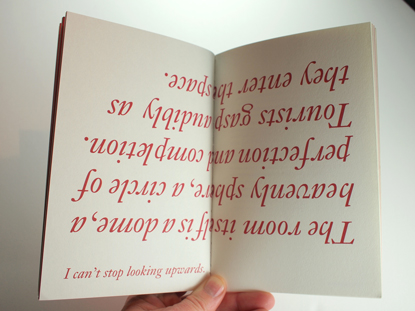 The room itself is a dome, a
heavenly sphere, a circle of
perfection and completion.
Tourists gasp audibly as
they enter the space.
I can't stop looking upwards.